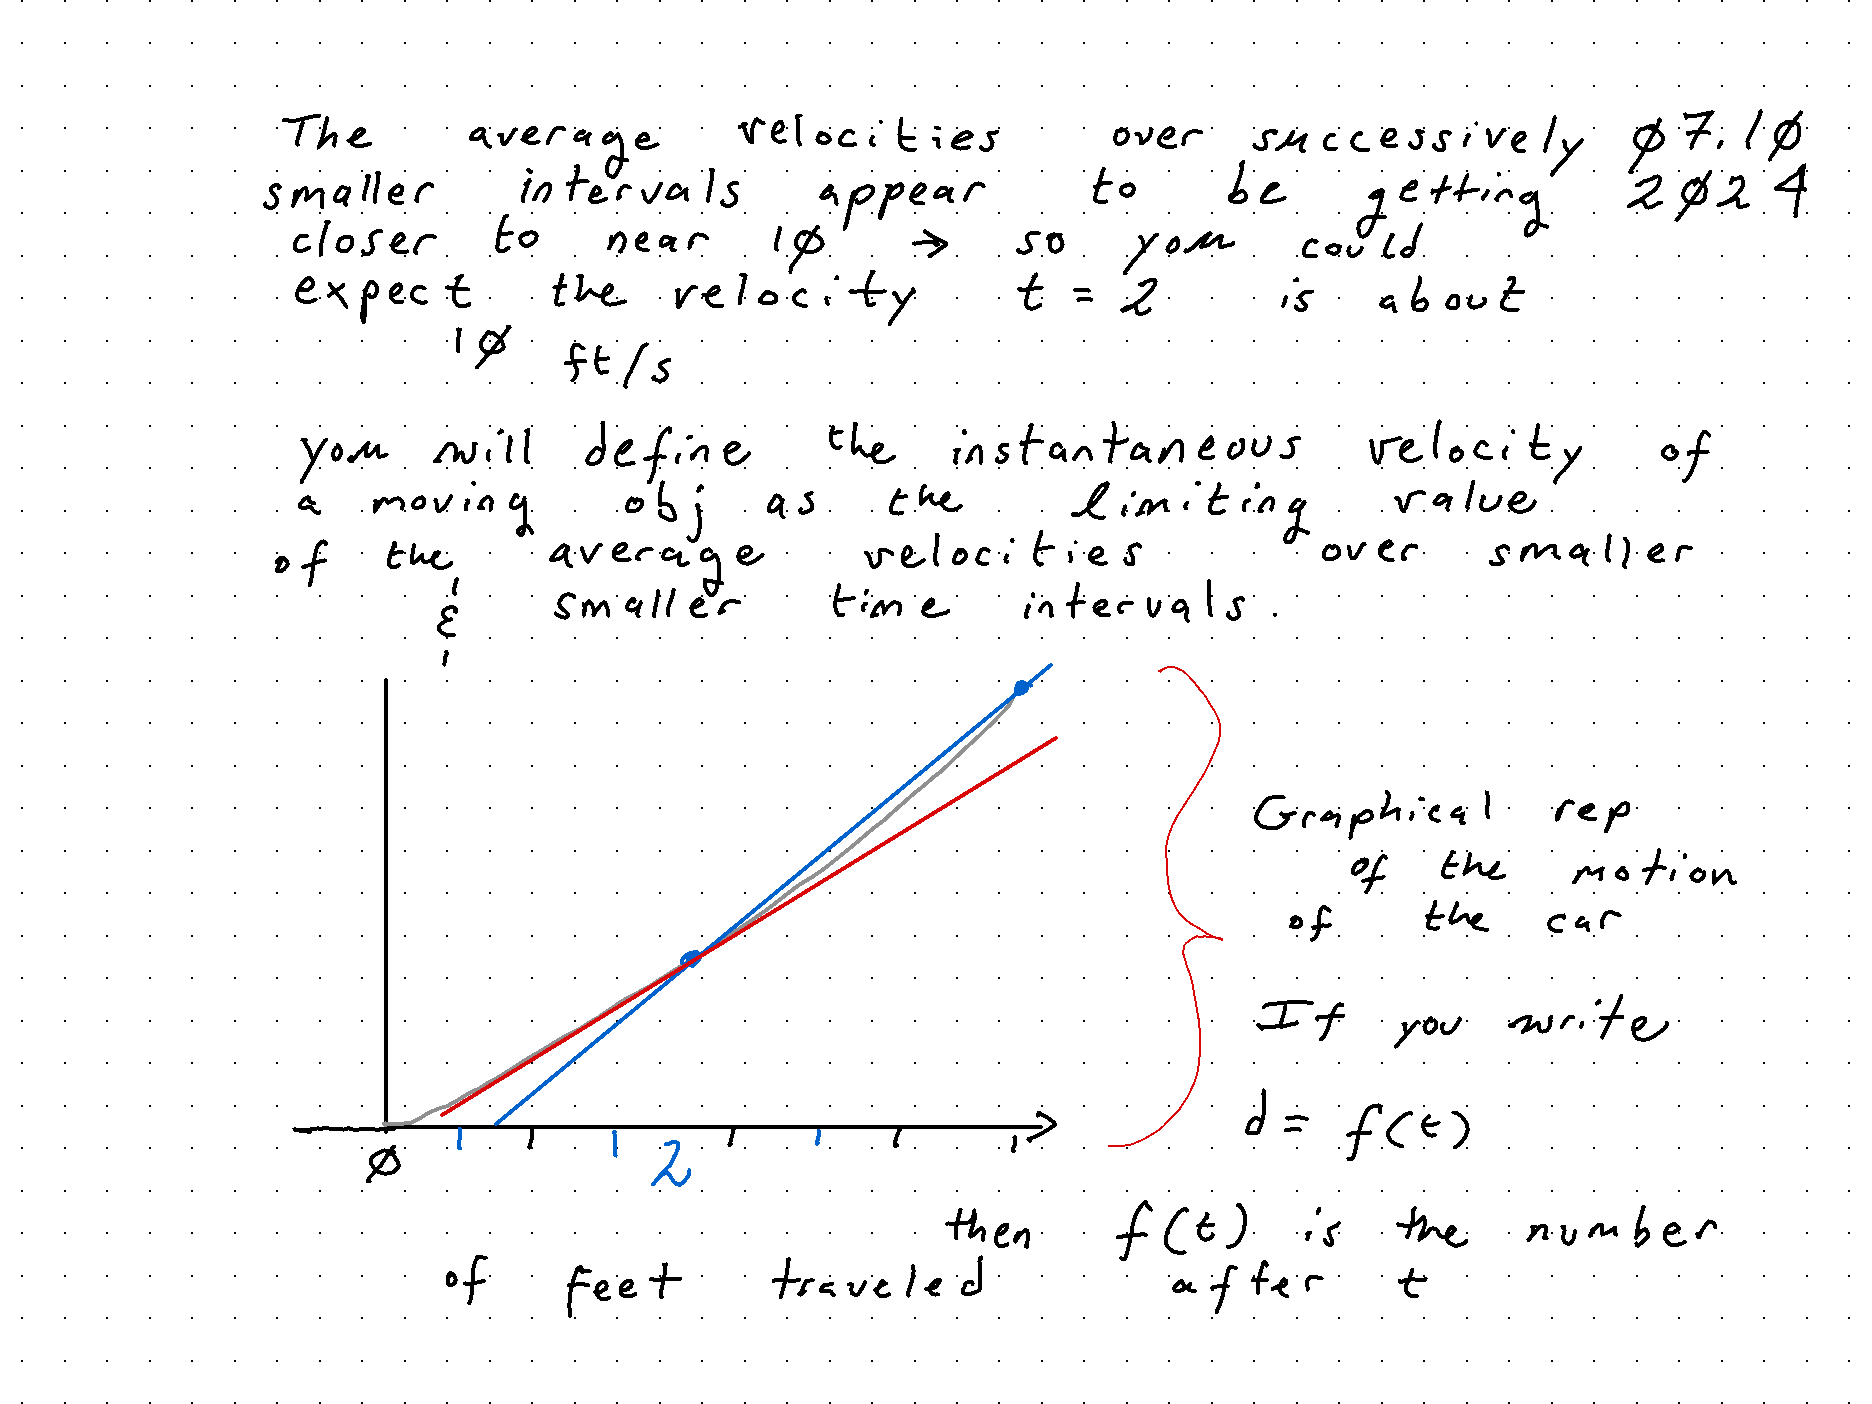 The average velocities over successively Ø7.1Ø
smaller intervals appear to be getting 2Ø24
closer to near 1Ø → so you could
expect the velocity t = 2 is about
1Ø ft/s
you will define the instantaneous velocity of
a moving obj as the limiting value
of the average velocities over smaller
& smaller time intervals.
Graphical rep
of the motion
of the car
If you write
d = f(t)
Ø 2
then f(t) is the number
of feet traveled after t